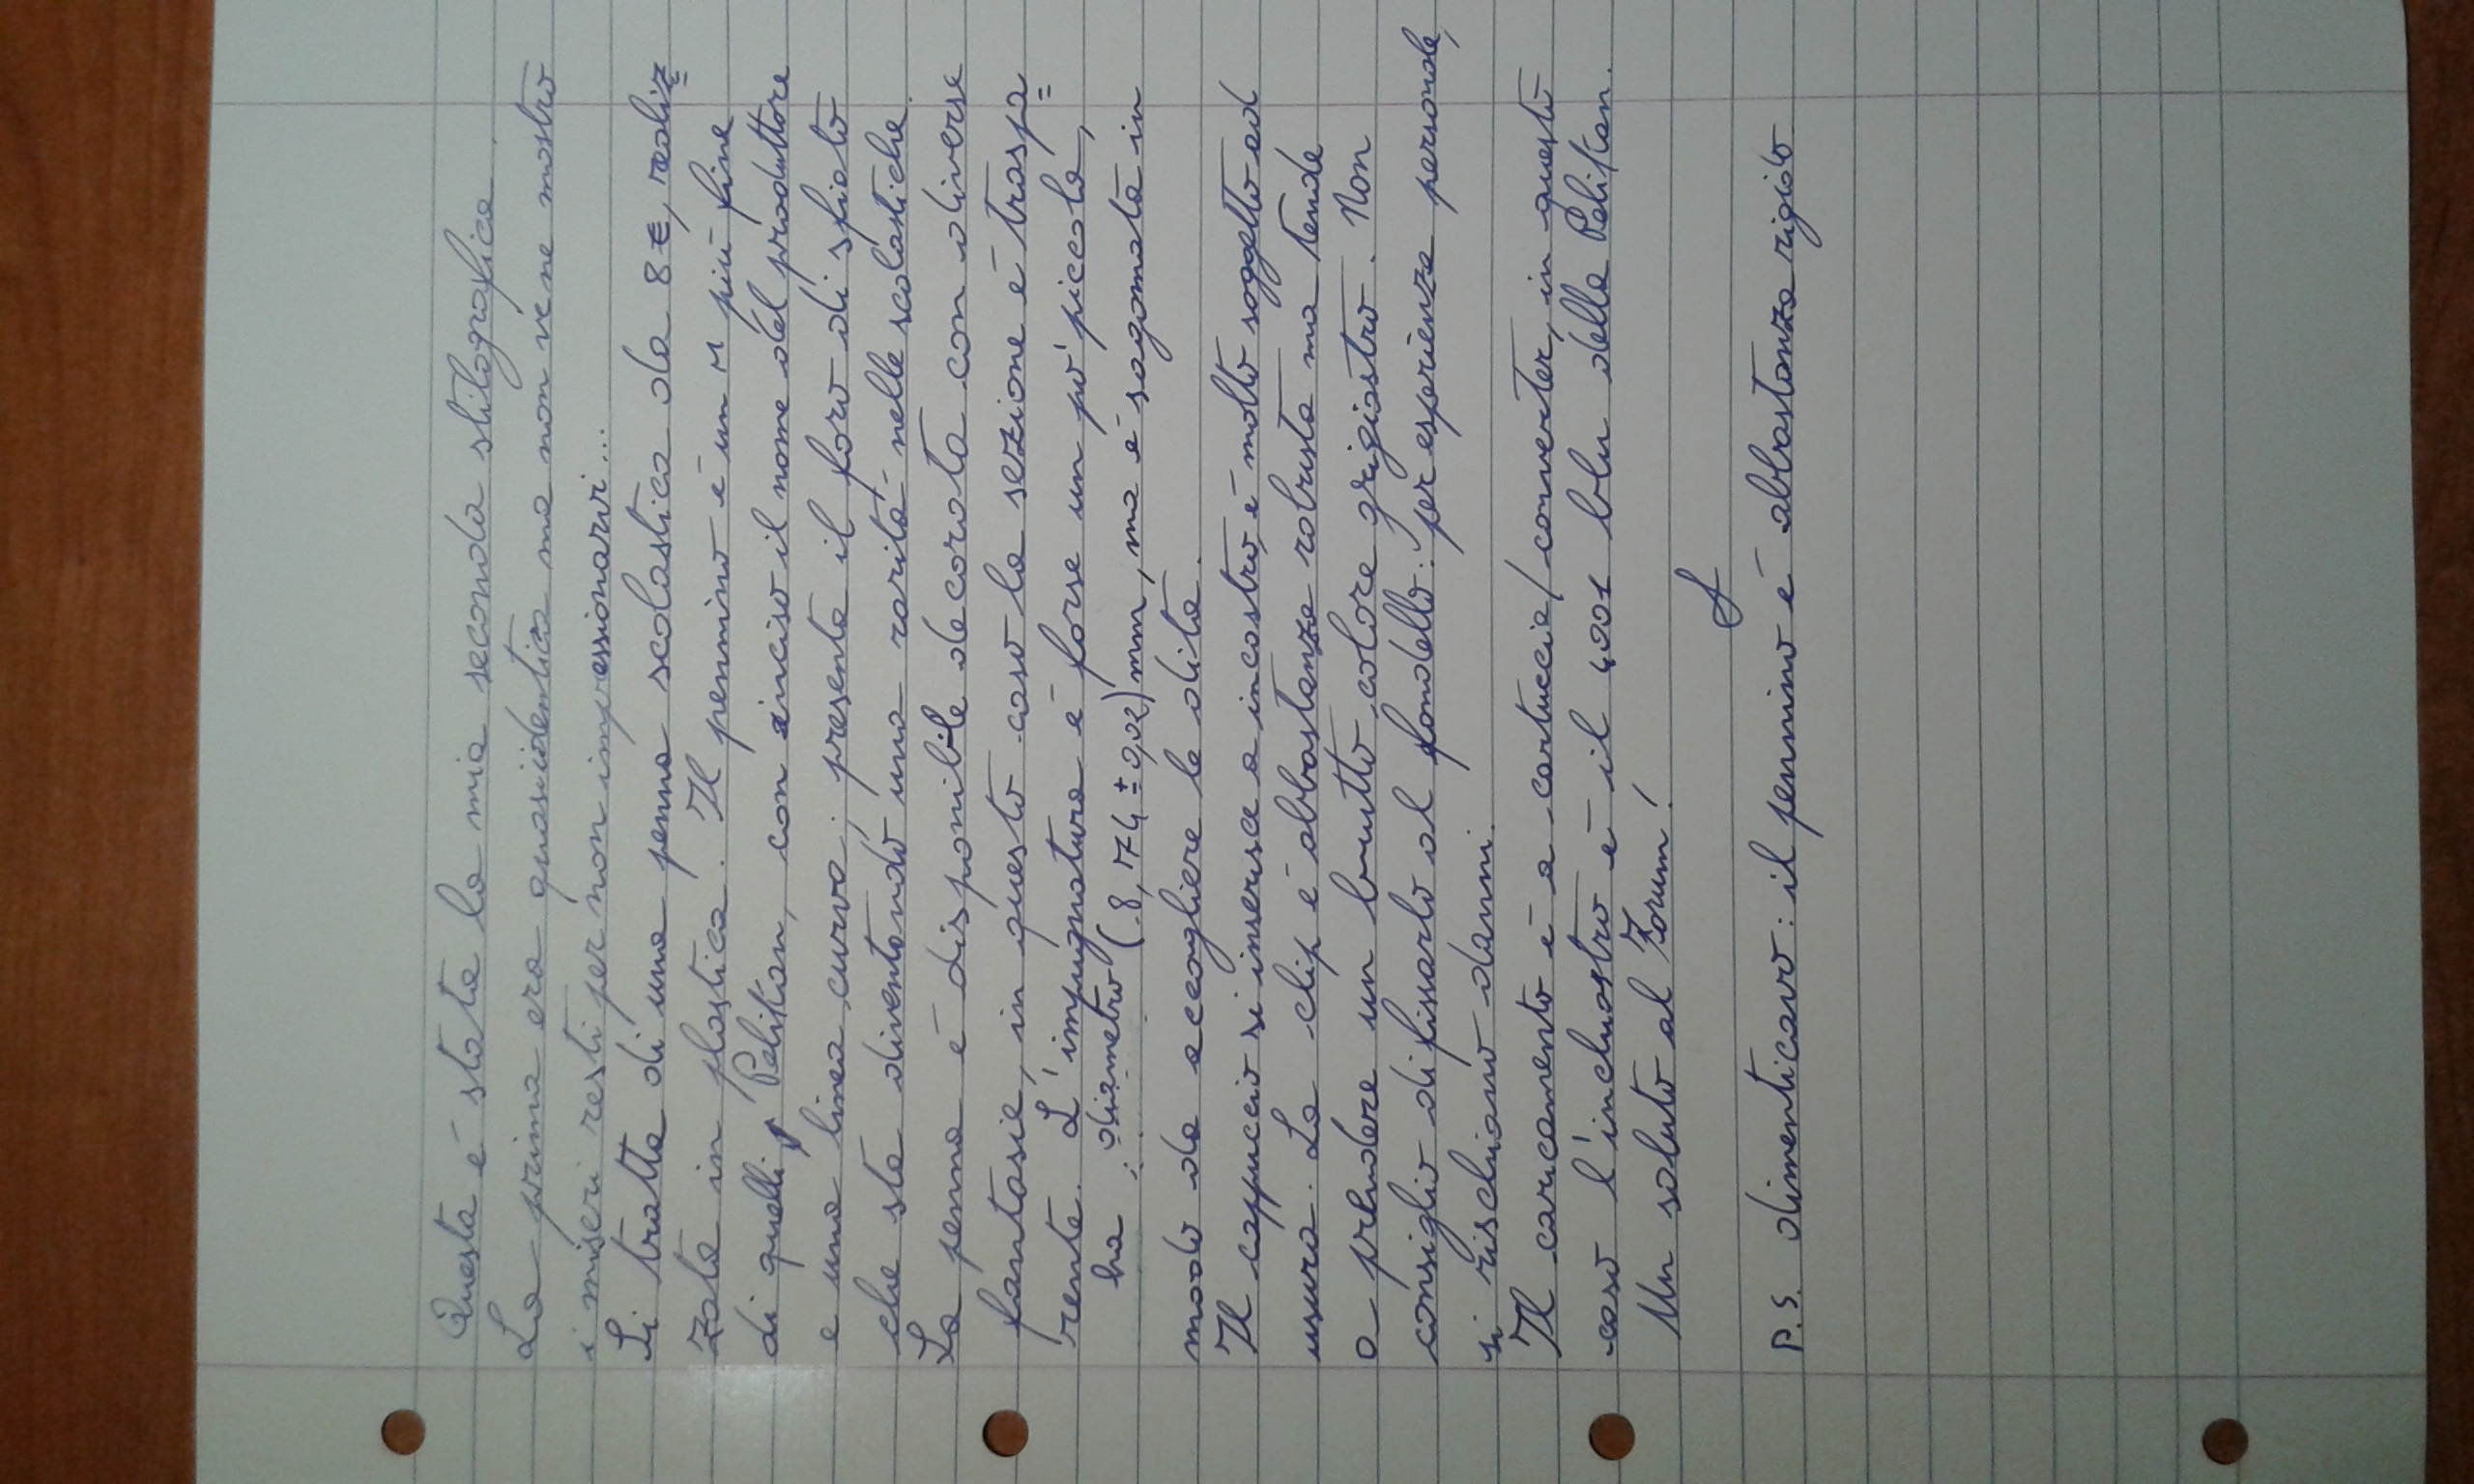 Questa è stata la mia seconda stilografica.
La prima era quasi identica ma non ve ne mostro
i miseri resti per non impressionarvi...
Si tratta di una penna scolastica da 8 €, realiz=
zata in plastica. Il pennino è un M più fine
di quelli Pelikan, con inciso il nome del produttore
e una linea curva: presente il foro di sfiato
che sta diventando una rarità nelle scolastiche.
La penna è disponibile decorata con diverse
fantasie, in questo caso la sezione è traspa=
rente. L'impugnatura è forse un po' piccola,
ha : diametro (8,174 ± 0,02) mm, ma è sagomata in
modo da accogliere le dita.
Il cappuccio si inserisce a incastro, è molto soggetto ad
usura. La clip è abbastanza robusta ma tende
a prendere un brutto colore grigiastro. Non
consiglio di fissarlo al fondello: per esperienza personale,
si rischiano danni.
Il caricamento è a cartuccia/converter, in questo
caso l'inchiostro è il 4001 blu della Pelikan.
Un saluto al Forum!
P.S. dimenticavo: il pennino è abbastanza rigido